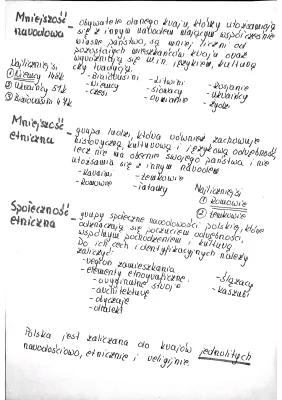 Mniejszość narodowa - obywatele danego kraju, którzy utożsamiają
się z innym narodem mającym współcześnie
własne państwo, są mniej liczni od
pozostałych mieszkańców kraju oraz
wyróżniają się m.in. językiem, kulturą
czy tradycją.
Najliczniejsi
① Niemcy 148k
② Ukraińcy 51k
③ Białorusini 47k
- Białorusini
- Niemcy
- Czesi
- Litwini
- Słowacy
- Ormianie
- Rosjanie
- Ukraińcy
- Żydzi
Mniejszość etniczna - grupa ludzi, która również zachowuje
historyczną, kulturową i językową odrębność,
lecz nie ma obecnie swojego państwa, i nie
utożsamia się z innym narodem
- Karaimi
- Romowie
- Łemkowie
- Tatarzy
Najliczniejsi
① Romowie
② Łemkowie
Społeczność etniczna - grupy społeczne narodowości polskiej, które
odznaczają się poczuciem odrębności,
wspólnym pochodzeniem i kulturą
Do ich cech identyfikacyjnych należy
zaliczyć:
- region zamieszkania
- elementy etnograficzne:
- oryginalne stroje
- architekturę
- obyczaje
- dialekt
- Ślązacy
- Kaszubi
Polska jest zaliczana do krajów jednolitych
narodościowo, etnicznie i religijnie